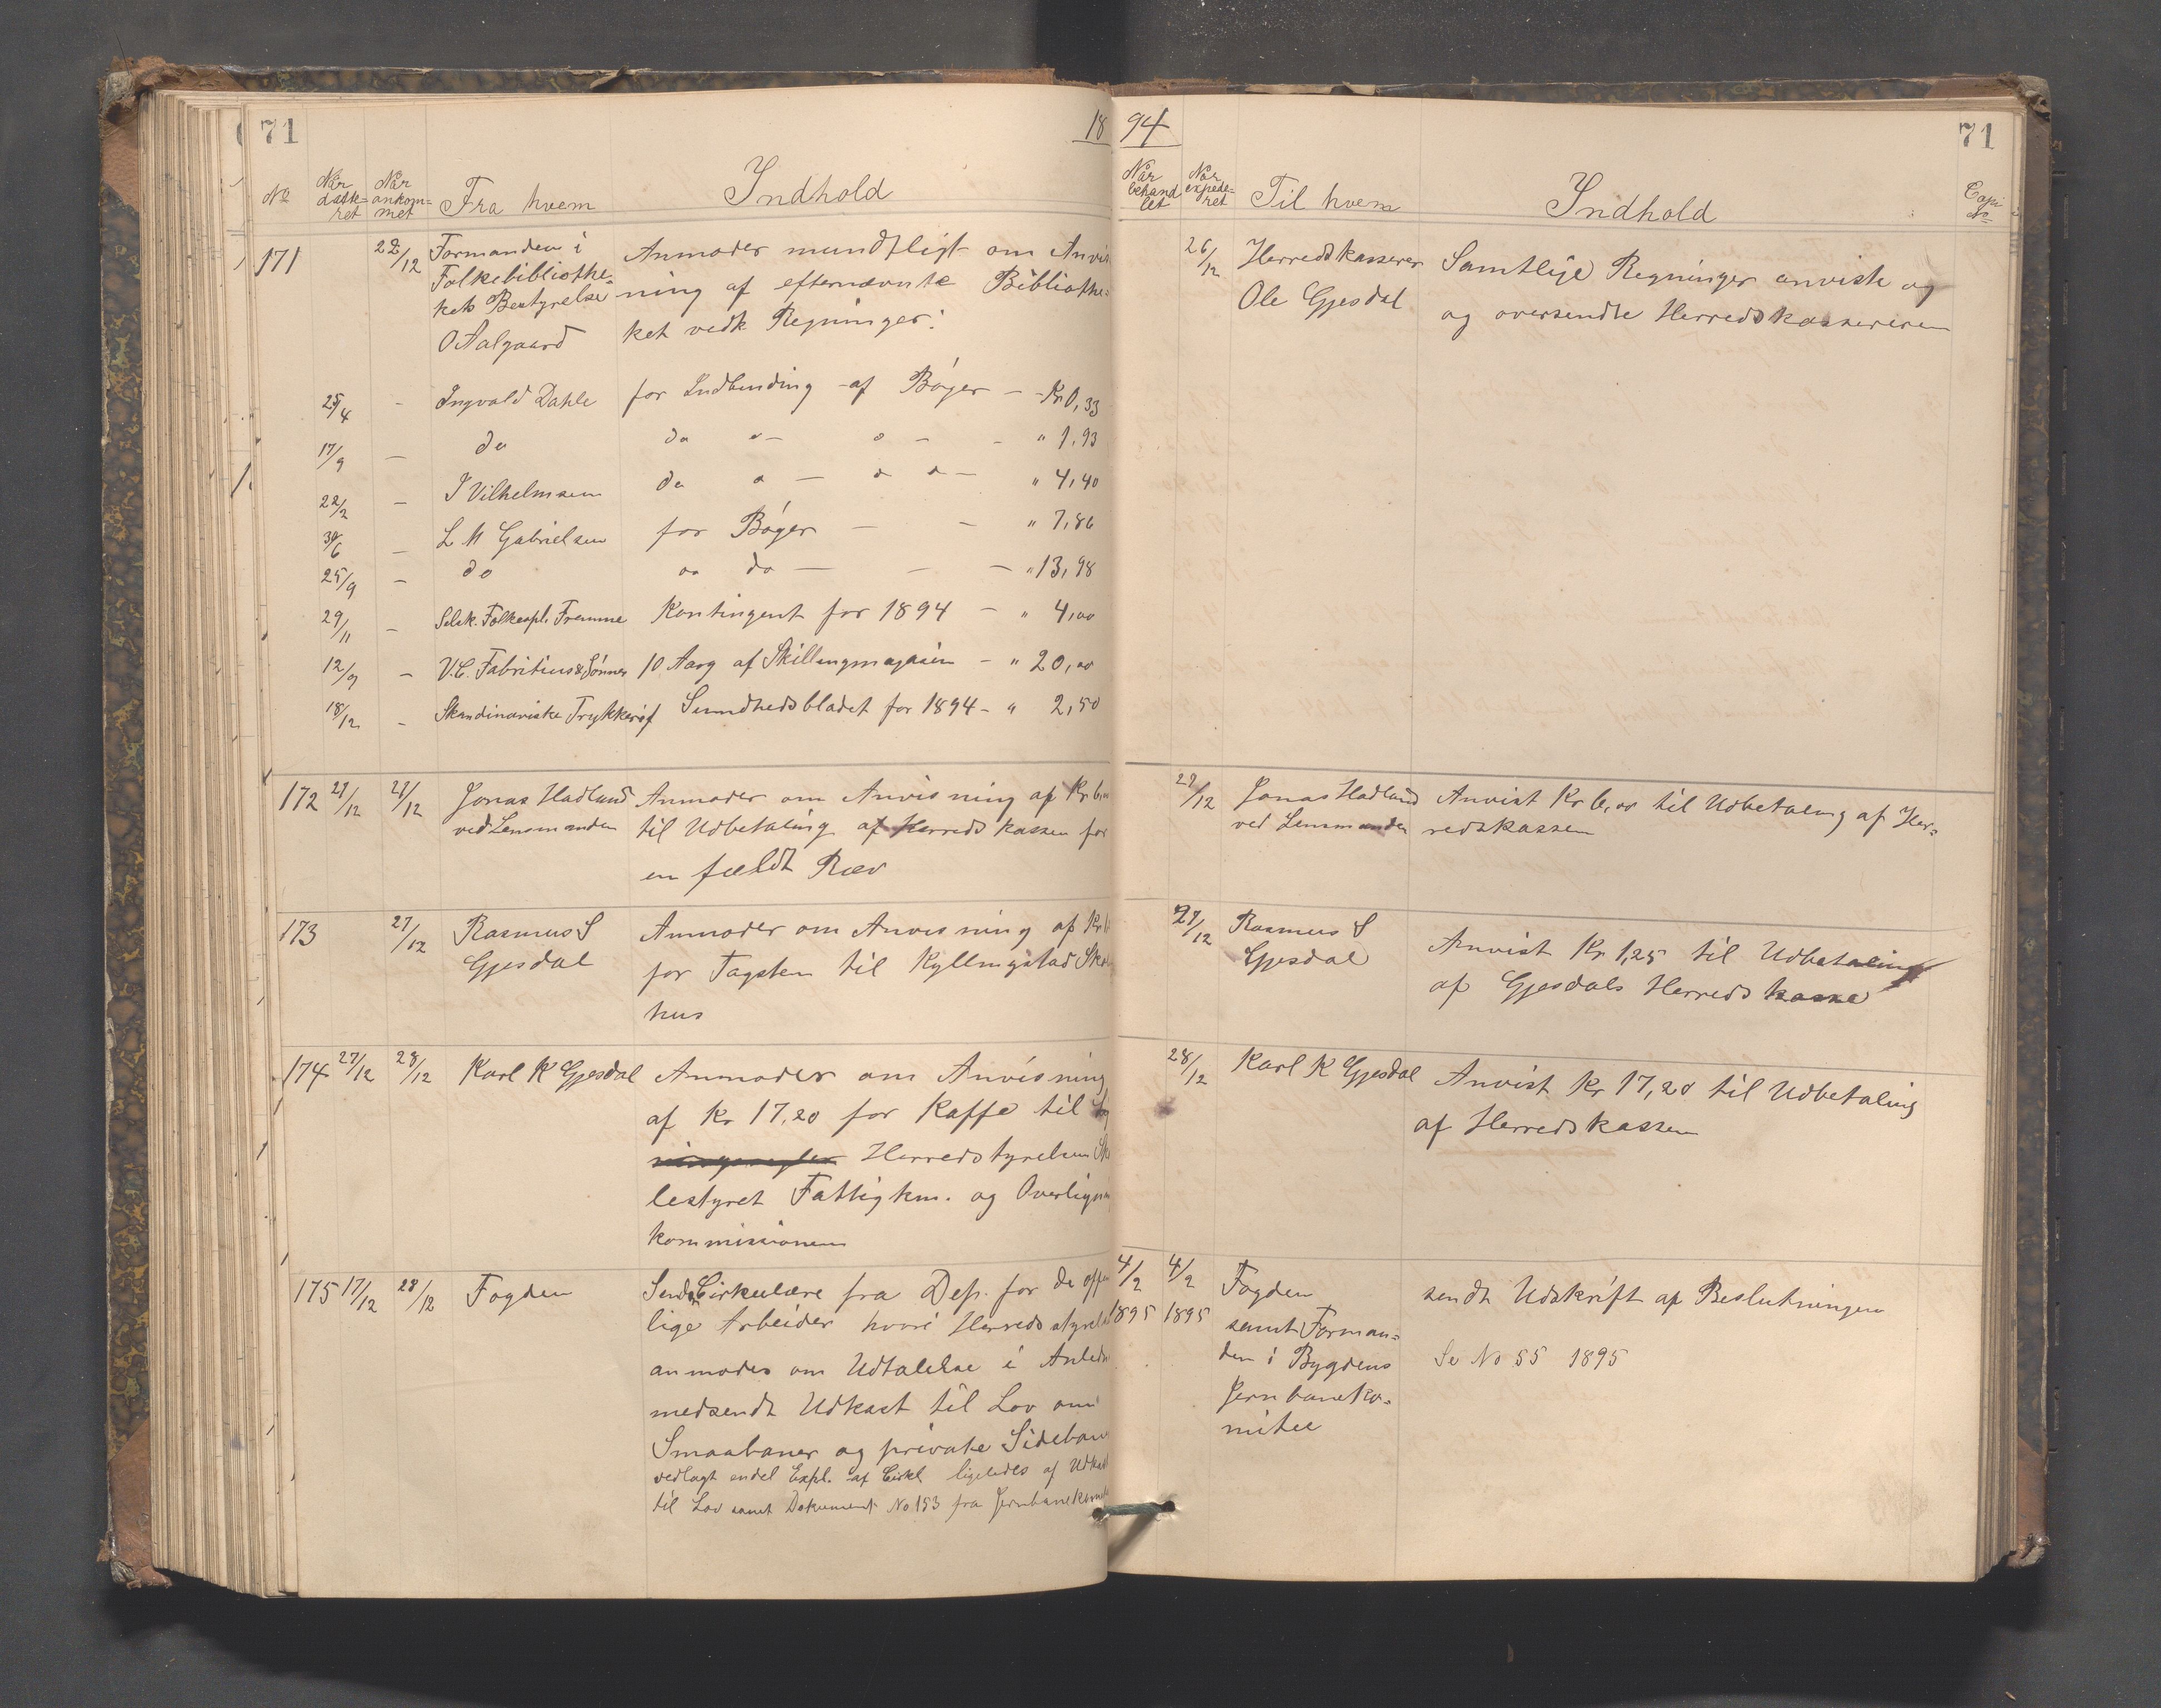 71
18
№
Når datteret
Når ankommet
Fra hvem
Indhold
171 22/12 Formanden i Anmoder mundtligt om Anvis
Folkebibliothe- ning af efternævnte Bibliothe-
kets Bestyrelse ket vedk Regninger:
O Aalgaard
25/4 - Ingvald Dahle for Indbinding af Bøger - - Kr 0,33
17/9 - do do - - - " 1,93
22/2 - I Vilhelmsen do - " 4,40
30/6 - L M Gabrielsen for Bøger - - " 7,86
25/9 - do do - - - " 13,98
29/11 - Selsk. Folkeopl. Fremme Kontingent for 1894 - " 4,00
12/9 - V.C. Fabritius & Sønner 10 Aarg af Skillingmagasin - " 20,00
18/12 - Skandinaviske Trykkerif Sundhedsbladet for 1894 - " 2,50
172 27/12 27/12 Jonas Hadland Anmoder om Anvisning af Kr 6,00
ved Lensmanden til Udbetaling af Herredskassen for
en fældt Ræv
173 27/12 Rasmus S Anmoder om Anvisning af Kr
Gjesdal for Tagsten til Kyllingstad Skol
hus
174 27/12 28/12 Karl K Gjesdal Anmoder om Anvisning
af Kr 17,20 for Kaffe til
Herredstyrelsen Sko
lestyret Fattigkm. og Overlignin
kommissionen
175 17/12 28/12 Fogden Sendt Cirkulære fra Dep. for de offent
lige Arbeider hvori Herredsstyrel
anmodes om Udtalelse i Anledn
medsendt Udkast til Lov om
Smaabaner og private Sideban
vedlagt endel Expl. af Cirkl. ligeledes af Udkast
til Lov samt Dokument No 153 fra Jernbanekomit
94
71
Når behandlet
Når expederet
Til hvem
Indhold
Copi №
26/12 Herredskasserer Samtlige Regninger anviste og
Ole Gjesdal og oversendte Herredskassereren
27/12 Jonas Hadland Anvist Kr 6,00 til Udbetaling af Her-
ved Lensmanden redskassen
27/12 Rasmus S
Gjesdal Anvist Kr 1,25 til Udbetaling
af Gjesdals Herredskasse
28/12 Karl K Gjesdal Anvist Kr 17,20 til Udbetaling
af Herredskassen
4/2 4/2 Fogden sendt Udskrift af Beslutningen
1895 1895 samt Forman-
den i Bygdens Se No 55 1895
Jernbaneko-
mitee